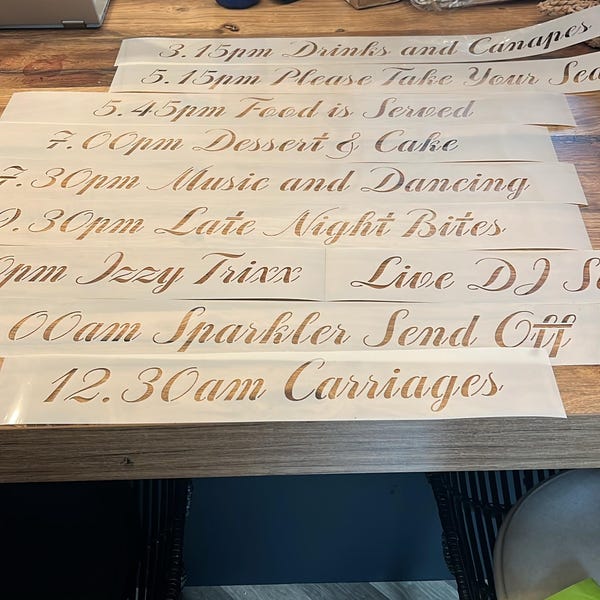 3.15pm Drinks and Canapes
5.15pm Please Take Your Sea
5.45pm Food is Served
7.00pm Dessert & Cake
7.30pm Music and Dancing
9.30pm Late Night Bites
0pm Izzy Trixx Live DJ S
00am Sparkler Send Off
12.30am Carriages